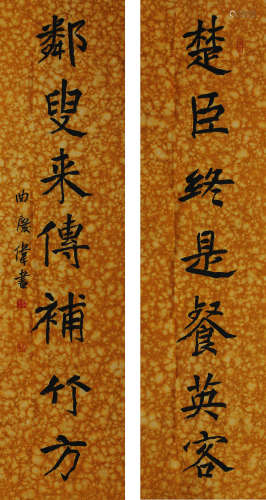 楚臣終是餐英客
鄰叟来傳補竹方
曲慶偉書